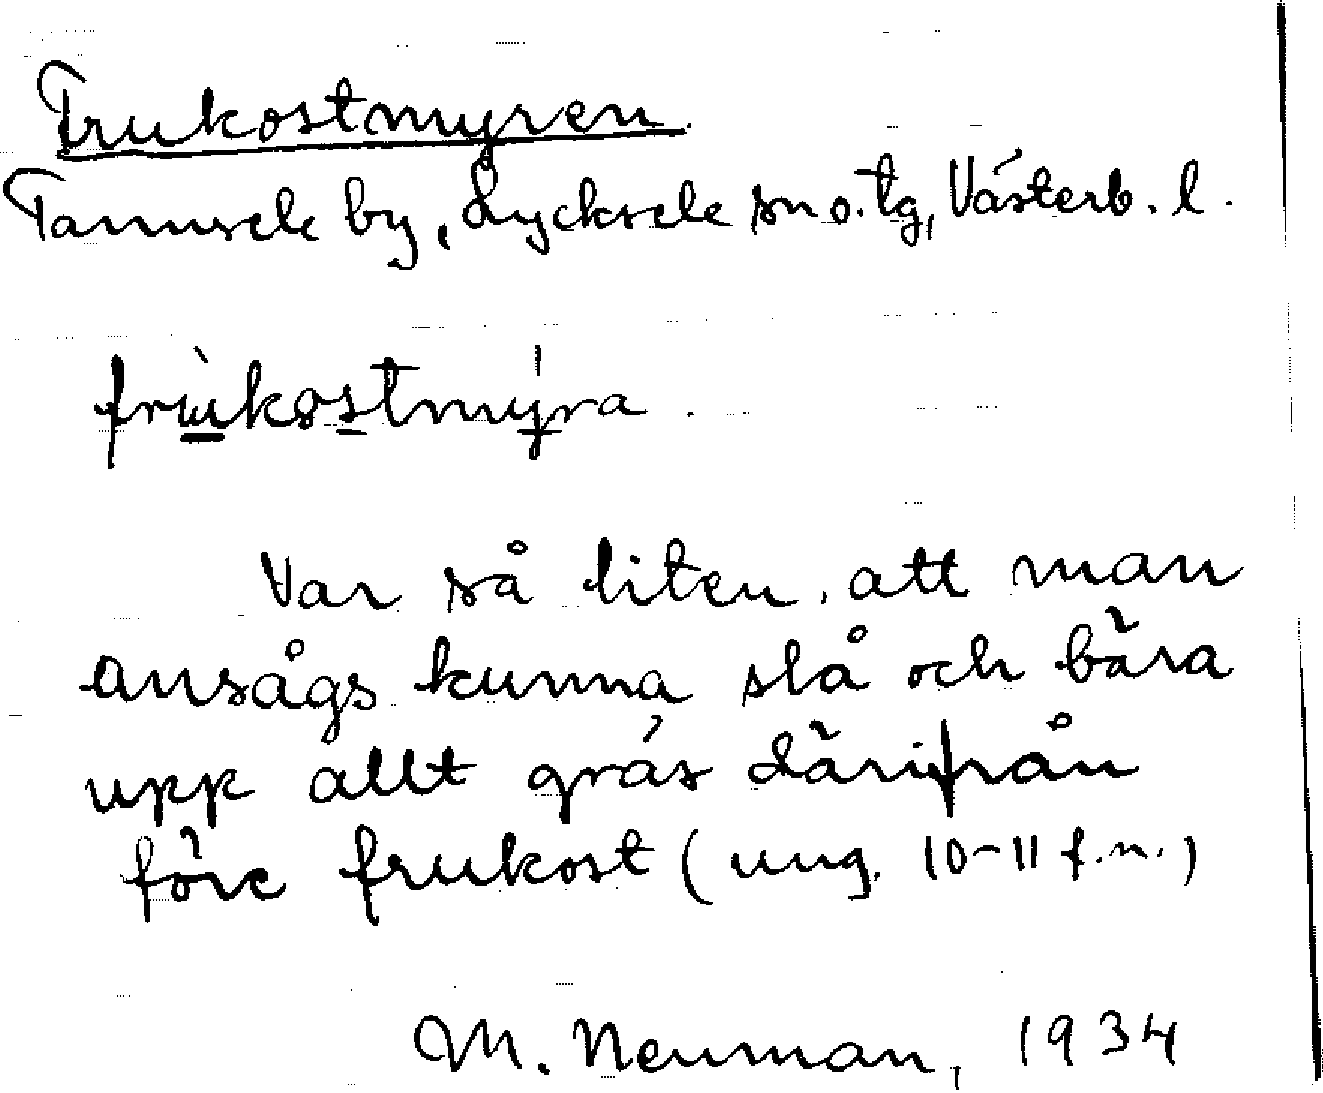 Frukostmyren
Tannsele by, Lycksele sn o. tg, Västerb. l.
frùkostmýra.
Var så liten, att man
ansågs kunna slå och bära
upp allt gräs därifrån
före frukost (ung. 10-11 f.m.)
M. Neuman, 1934